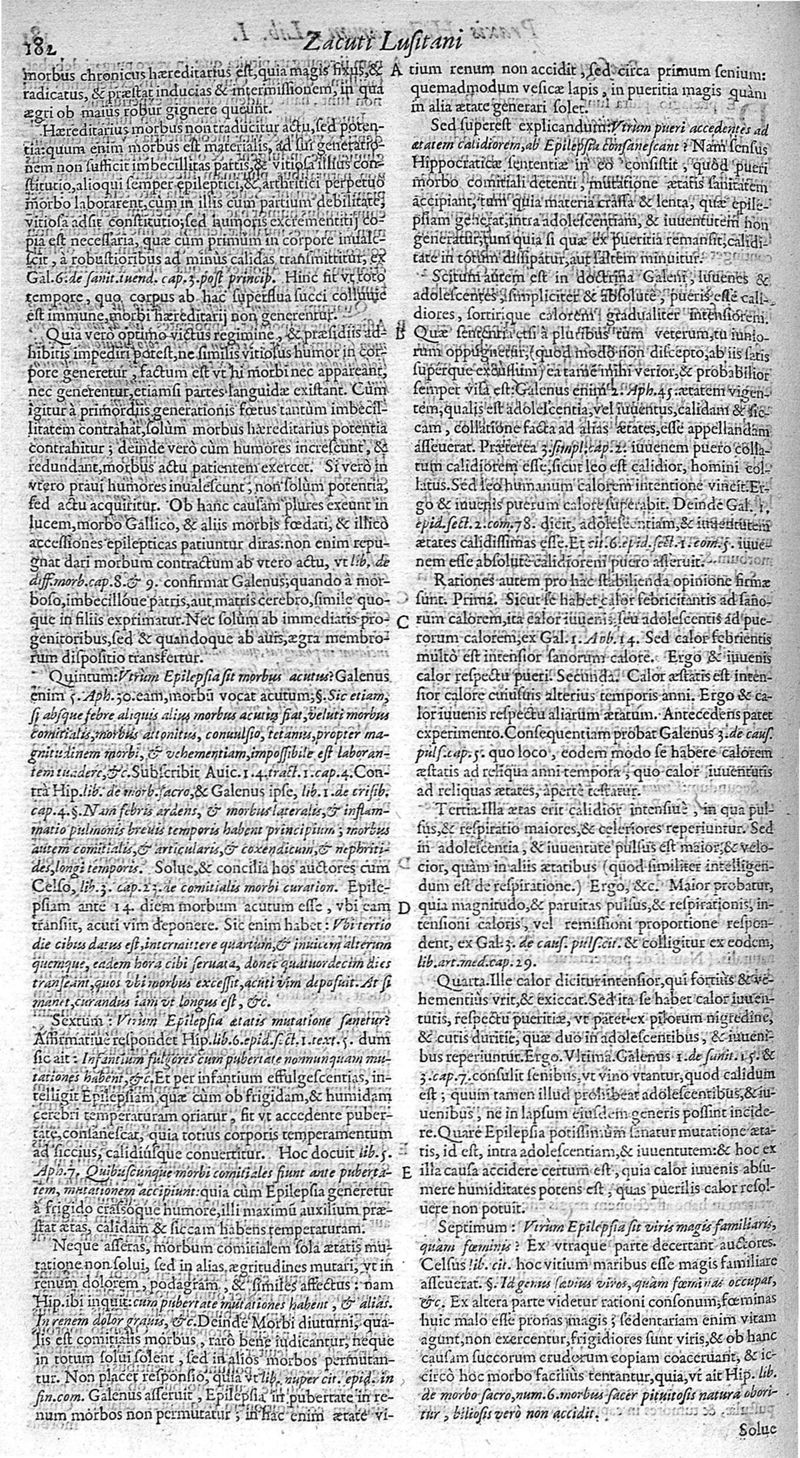 182
Zacuti Lusitani
morbus chronicus hæreditarius est, quia magis fixus, &
radicatus, & præstat inducias & intermissionem, in qua
ægri ob maius robur gignere queunt.
Hæreditarius morbus non traducitur actu, sed poten-
tia: quum enim morbus est materialis, ad sui generatio-
nem non sufficit imbecillitas partis, & vitiosa illius con-
stitutio, alioqui semper epileptici, & arthritici perpetuo
morbo laborarent, cum in illis cum partium debilitate,
vitiosa adsit constitutio, sed humoris excrementitij co-
pia est necessaria, quæ cùm primum in corpore inuale-
scit, à robustioribus ad minus calidas transmittitur, ex
Gal. 6. de sanit. tuend. cap. 3. post princip. Hinc fit vt toto
tempore, quo corpus ab hac superflua succi colluuie
est immune, morbi hæreditarij non generentur.
Quia verò optimo victus regimine, & præsidiis ad-
hibitis impediri potest, ne similis vitiosus humor in cor-
pore generetur, factum est vt hi morbi nec appareant,
nec generentur, etiamsi partes languidæ existant. Cùm
igitur à primordiis generationis fœtus tantum imbecil-
litatem contrahat, solùm morbus hæreditarius potentia
contrahitur; deinde verò cùm humores increscunt, &
redundant, morbus actu patientem exercet. Si verò in
vtero praui humores inualescunt, non solùm potentia,
sed actu acquiritur. Ob hanc causam plures exeunt in
lucem, morbo Gallico, & aliis morbis fœdati, & illicò
accessiones epilepticas patiuntur diras: non enim repu-
gnat dari morbum contractum ab vtero actu, vt lib. de
diff. morb. cap. 8. & 9. confirmat Galenus; quando à mor-
boso, imbecillóue patris, aut matris cerebro, simile quo-
que in filiis exprimatur. Nec solùm ab immediatis pro-
genitoribus, sed & quandoque ab auis, ægra membro-
rum dispositio transfertur.
Quintum: Vtrum Epilepsia sit morbus acutus? Galenus
enim 5. Aph. 30. eam, morbũ vocat acutum; §. Sic etiam,
si absque febre aliquis alius morbus acutus fiat, veluti morbus
comitialis, morbus attonitus, conuulsio, tetanus, propter ma-
gnitudinem morbi, & vehementiam, impossibile est laboran-
tem euadere, &c. Subscribit Auic. 1. 4. tract. 1. cap. 4. Con-
trà Hip. lib. de morb. sacro, & Galenus ipse, lib. 1. de crisib.
cap. 4. §. Nam febris ardens, & morbus lateralis, & inflam-
matio pulmonis breuis temporis habent principium; morbus
autem comitialis, & articularis, & coxendicum, & nephriti-
des, longi temporis. Solue, & concilia hos auctores cum
Celso, lib. 3. cap. 23. de comitialis morbi curation. Epile-
psiam ante 14. diem morbum acutum esse, vbi eam
transiit, acuti vim deponere. Sic enim habet: Vbi tertio
die cibus datus est, intermittere quartum, & inuicem alterum
quemque, eadem hora cibi seruata, donec quatuordecim dies
transeant, quos vbi morbus excessit, acuti vim deposuit. At si
manet, curandus iam vt longus est, &c.
Sextum: Vtrum Epilepsia ætatis mutatione sanetur?
Affirmatiue respondet Hip. lib. 6. epid. sect. 1. text. 5. dum
sic ait: Infantium fulgores cum pubertate nonnunquam mu-
tationes habent, &c. Et per infantium effulgescentias, in-
telligit Epilepsiam, quæ cùm ob frigidam, & humidam
cerebri temperaturam oriatur, fit vt accedente puber-
tate, consanescat, quia totius corporis temperamentum
ad siccius, calidiusque conuertitur. Hoc docuit lib. 5.
Aph. 7. Quibuscunque morbi comitiales fiunt ante puberta-
tem, mutationem accipiunt: quia cùm Epilepsia generetur
à frigido crassoque humore, illi maximũ auxilium præ-
stat ætas, calidam & siccam habens temperaturam.
Neque asseras, morbum comitialem sola ætatis mu-
tatione non solui, sed in alias ægritudines mutari, vt in
renum dolorem, podagram, & similes affectus: nam
Hip. ibi inquit: cum pubertate mutationes habent, & alias.
In renem dolor grauis, &c. Deinde Morbi diuturni, qua-
lis est comitialis morbus, rarò bene iudicantur, neque
in totum solui solent, sed in alios morbos permutan-
tur. Non placet responsio, quia vt lib. nuper cit. epid. in
fin. com. Galenus asseruit, Epilepsia in pubertate in re-
num morbos non permutatur; in hac enim ætate vi-
A tium renum non accidit, sed circa primum senium:
quemadmodum vesicæ lapis, in pueritia magis quàm
in alia ætate generari solet.
Sed superest explicandum: Vtrum pueri accedentes ad
ætatem calidiorem, ab Epilepsia consanescant? Nam sensus
Hippocraticæ sententiæ in eo consistit, quòd pueri
morbo comitiali detenti, mutatione ætatis sanitatem
accipiant, tum quia materia crassa & lenta, quæ epile-
psiam generat, intra adolescentiam, & iuuentutem non
generatur; tum quia si quæ ex pueritia remansit, calidi-
tate in totum dissipatur, aut saltem minuitur.
Scitum autem est in doctrina Galeni, iuuenes &
adolescentes, simpliciter & absolutè, pueris esse cali-
diores, sortirique calorem gradualiter intensiorem.
B Quæ sententia etsi à pluribus tùm veterum, tù iunio-
rum oppugnetur, (quod modò non discepto, ab iis satis
superque excussum) ea tamen mihi verior, & probabilior
semper visa est: Galenus enim 2. Aph. 45. ætatem vigen-
tem, qualis est adolescentia, vel iuuentus, calidam & sic-
cam, collatione facta ad alias ætates, esse appellandam
asseuerat. Præterea 3. simpl. cap. 2. iuuenem puero colla-
tum calidiorem esse, sicut leo est calidior, homini col-
latus. Sed leo humanum calorem intentione vincit. Er-
go & iuuenis puerum calore superabit. Deinde Gal. 1.
epid. sect. 2. com. 78. dicit, adolescentiam, & iuuentutem
ætates calidissimas esse. Et cit. 6. epid. sect. 1. com. 5. iuue-
nem esse absolutè calidiorem puero asseruit.
Rationes autem pro hac stabilienda opinione firmæ
sunt. Prima. Sicut se habet calor febricitantis ad sano-
C rum calorem, ita calor iuuenis, seu adolescentis ad pue-
rorum calorem, ex Gal. 1. Aph. 14. Sed calor febrientis
multò est intensior sanorum calore. Ergo & iuuenis
calor respectu pueri. Secunda. Calor æstatis est inten-
sior calore cuiusuis alterius temporis anni. Ergo & ca-
lor iuuenis respectu aliarum ætatum. Antecedens patet
experimento. Consequentiam probat Galenus 3. de caus.
puls. cap. 5. quo loco, eodem modo se habere calorem
æstatis ad reliqua anni tempora, quo calor iuuentutis
ad reliquas ætates, apertè testatur.
Tertia. Illa ætas erit calidior intensiuè, in qua pul-
sus, & respiratio maiores, & celeriores reperiuntur. Sed
in adolescentia, & iuuentute pulsus est maior, & velo-
cior, quàm in aliis ætatibus (quod similiter intelligen-
dum est de respiratione.) Ergo, &c. Maior probatur,
D quia magnitudo, & paruitas pulsus, & respirationis, in-
tensioni caloris, vel remissioni proportione respon-
dent, ex Gal. 3. de caus. puls. cit. & colligitur ex eodem,
lib. art. med. cap. 29.
Quarta. Ille calor dicitur intensior, qui fortiùs & ve-
hementiùs vrit, & exiccat. Sed ita se habet calor iuuen-
tutis, respectu pueritiæ, vt patet ex pilorum nigredine,
& cutis duritie, quæ duo in adolescentibus, & iuueni-
bus reperiuntur. Ergo. Vltima. Galenus 1. de sanit. 15. &
3. cap. 7. consulit senibus, vt vino vtantur, quod calidum
est; quum tamen illud prohibeat adolescentibus, & iu-
uenibus, ne in lapsum eiusdem generis possint incide-
re. Quare Epilepsia potissimùm sanatur mutatione æta-
tis, id est, intra adolescentiam, & iuuentutem: & hoc ex
E illa causa accidere certum est, quia calor iuuenis absu-
mere humiditates potens est, quas puerilis calor resol-
uere non potuit.
Septimum: Vtrum Epilepsia sit viris magis familiaris,
quàm fœminis? Ex vtraque parte decertant auctores.
Celsus lib. cit. hoc vitium maribus esse magis familiare
asseuerat. §. Id genus sæpius viros, quàm fœminas occupat,
&c. Ex altera parte videtur rationi consonum, fœminas
huic malo esse pronas magis; sedentariam enim vitam
agunt, non exercentur, frigidiores sunt viris, & ob hanc
causam succorum crudorum copiam coaceruant, & ic-
circò hoc morbo faciliùs tentantur, quia, vt ait Hip. lib.
de morbo sacro, num. 6. morbus sacer pituitosis natura obori-
tur, biliosis verò non accidit.
Solue